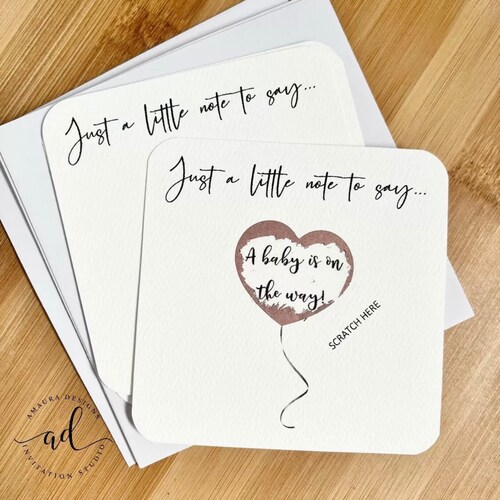 Just a little note to say...
Just a little note to say...
A baby is on
the way!
SCRATCH HERE
AMAURA DESIGN
ad
INVITATION STUDIO